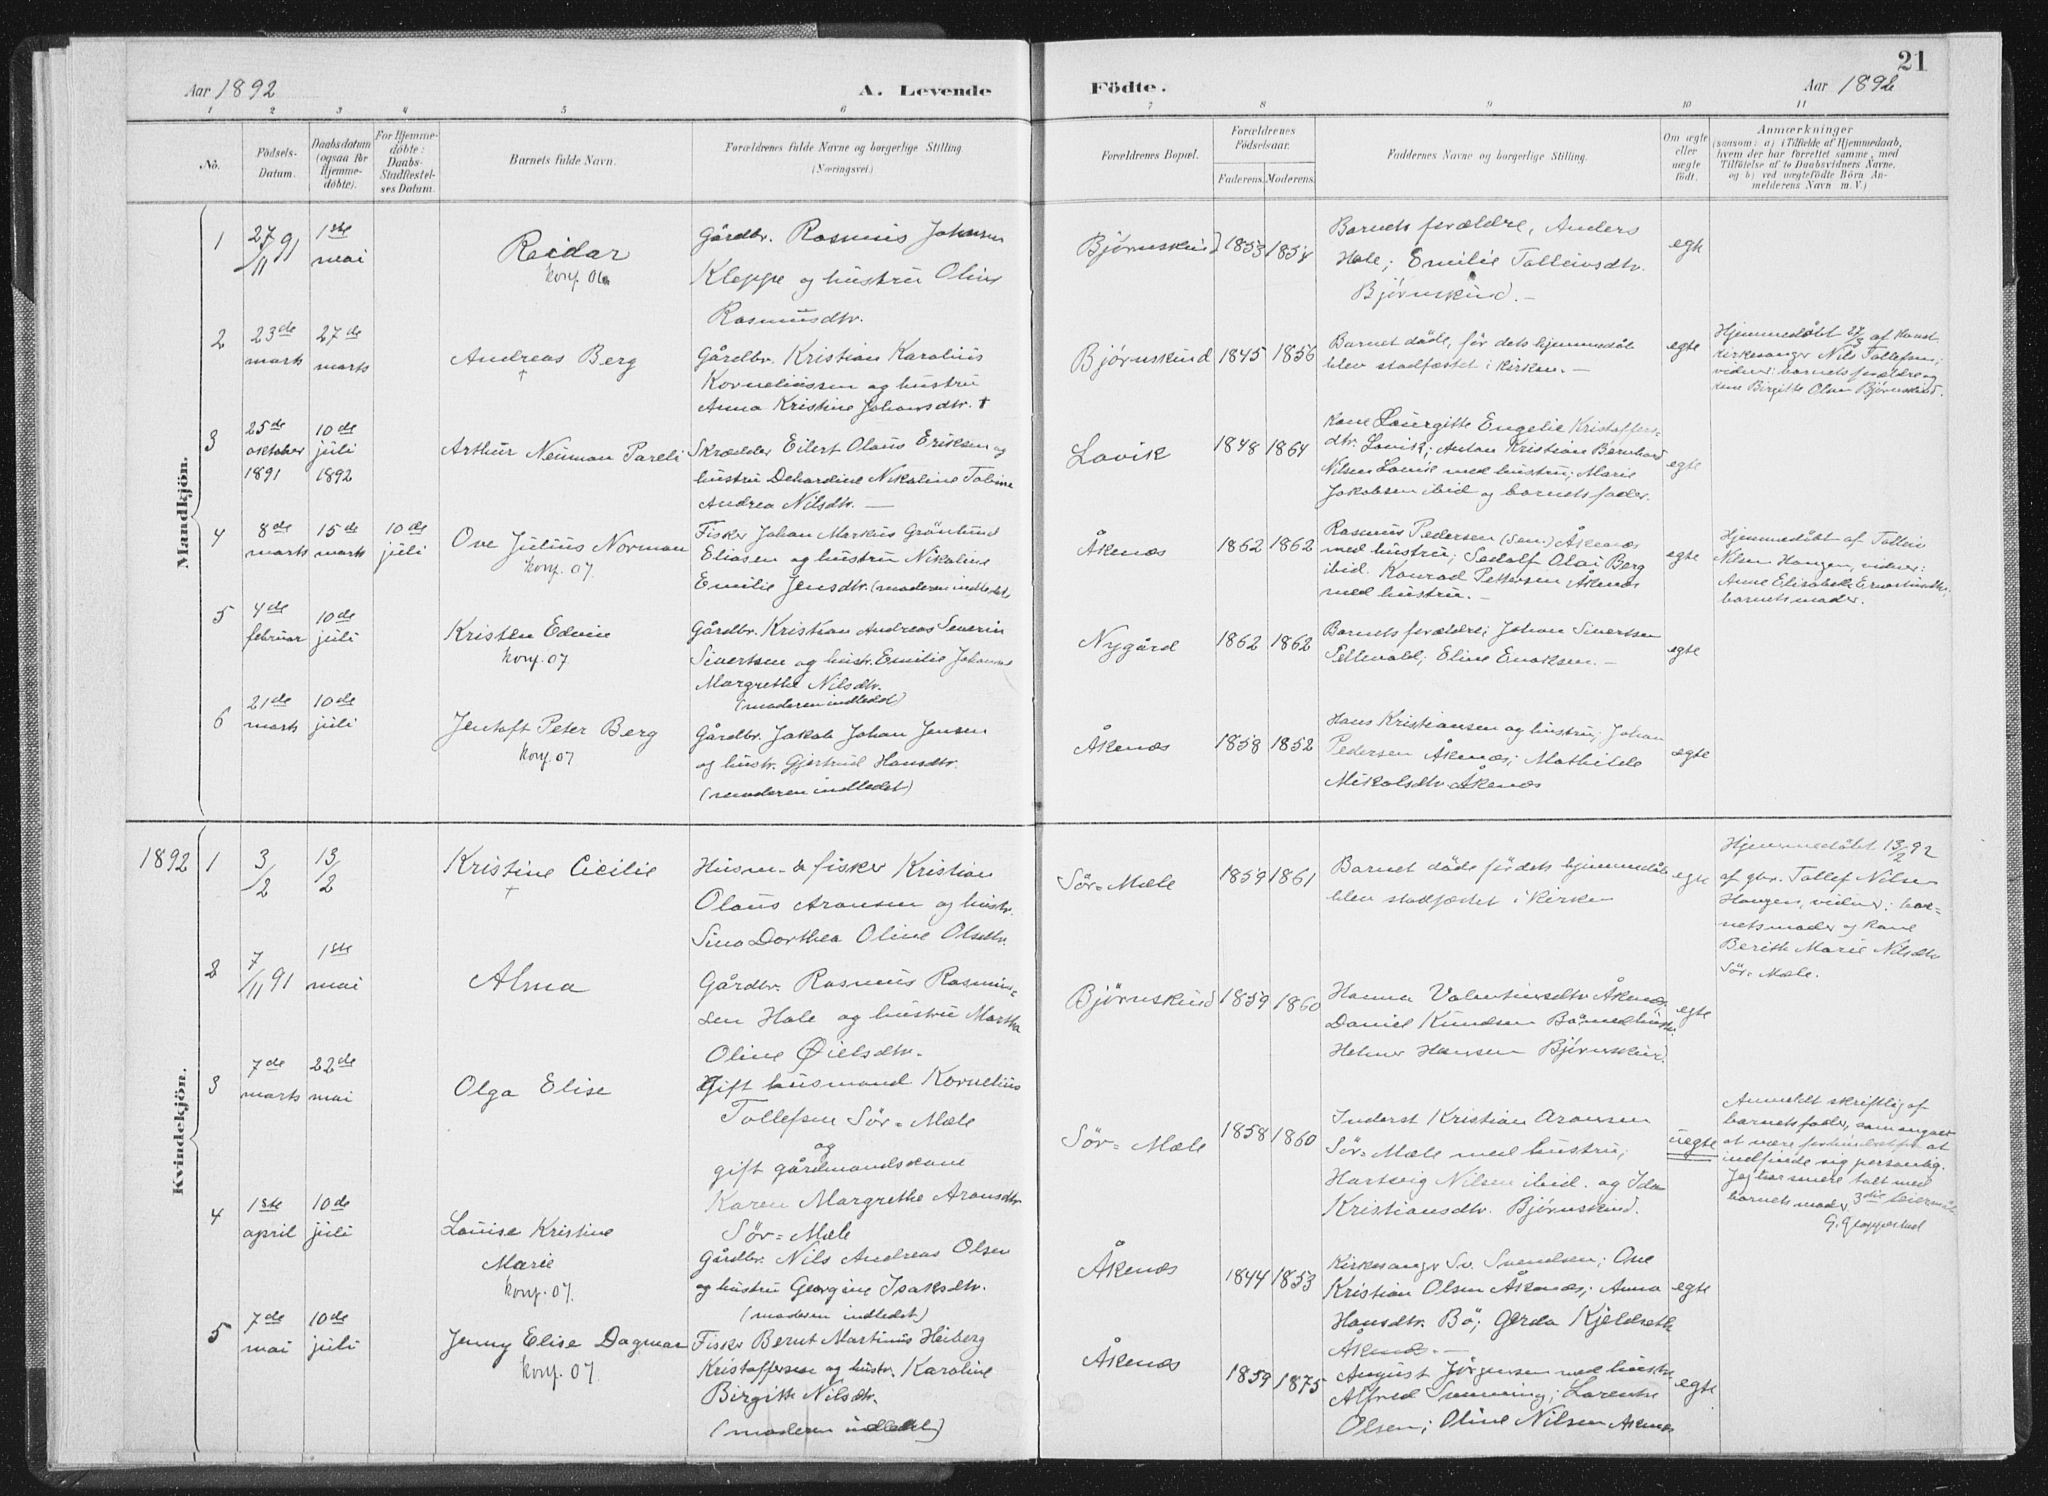 21
Aar 1892
A. Levende
Födte.
Aar 1892
1 2 3 4 5 6 7 8 9 10 11
No.
Födsels-
Datum.
Daabsdatum
(ogsaa for
Hjemme-
döbte).
For Hjemme-
döbte:
Daabs-
Stadfæstel-
ses Datum.
Barnets fulde Navn.
Forældrenes fulde Navne og borgerlige Stilling.
(Næringsvei.)
Forældrenes Bopæl.
Forældrenes
Födselsaar.
Faderens. Moderens.
Faddernes Navne og borgerlige Stilling.
Om ægte
eller
uægte
födt.
Anmærkninger
(saasom: a) i Tilfælde af Hjemmedaab,
hvem der har forrettet samme, med
Tilföielse af to Daabsvidners Navne,
og b) ved uægtefödte Börn An-
melderens Navn m. V.)
Mandkjön.
1
27/11 91
1ste
mai
Reidar
konf. 06
Gårdbr. Rasmus Johnsen
Kleppe og hustru Oline
Rasmusdtr.
Björnskind
1853 1854
Barnets forældre, Anders
Hole; Emilie Tolleivsdtr.
Björnskind. —
egte
2
23de
marts
27de
marts
Andreas Berg
†
Gårdbr. Kristian Karolius
Korneliussen og hustru
Anna Kristine Johansdtr. †
Bjørnskind
1845 1856
Barnet döde, för dets hjemmedåb
blev stadfæstet i kirken. —
egte
Hjemmedöbt 27/3 af konst.
kirkesanger Nils Tollefsen;
vidner: barnets forældre og
Birgitte Olsen Bjørnskind.
3
25de
oktober
1891
10de
juli
1892
Arthur Neuman Pareli
Skrædder Eilert Olaus Eriksen og
hustru Dehardine Nikoline Tobine
Andrea Nilsdtr. —
Lovik
1848 1864
Kone Laurgitte Engelie Kristoffers-
dtr. Lovik; Anton Kristian Bernhard
Nilsen Lovik med hustru; Marie
Jakobsen ibid og barnets fader.
egte
4
8de
marts
15de
marts
10de
juli
Ove Julius Norman
konf. 07.
Fisker Johan Markus Grönlund
Eliasen og hustru Nikoline
Emilie Jensdtr. (moderen indledet)
Åkenæs
1862 1862
Rasmus Pedersen (sen.) Åkenæs
med hustru; Sedolf Olai Berg
ibid. Konrad Pettersen Åkenæs
med hustru. —
egte
Hjemmedöbt af Tolleiv
Nilsen Haugen, vidner:
Anne Elisabeth Ernstinsdtr,
barnets moder.
5
4de
februar
10de
juli
Kristen Edvin
konf. 07
Gårdbr. Kristian Andreas Severin
Sivertsen og hustr. Emilie Johanne
Margrethe Nilsdtr.
(moderen indledet)
Nygård
1862 1862
Barnets forældre; Johan Sivertsen
; Eline Enoksen. —
egte
6
21de
marts
10de
juli
Jentoft Peter Berg
konf. 07
Gårdbr. Jakob Johan Jensen
og hustr. Gjertrud Hansdtr.
(moderen indledet)
Åkenæs
1858 1852
Hans Kristiansen og hustru; Johan
Pedersen Åkenæs; Mathilde
Mikalsdtr Åkenæs
egte
Kvindekjön.
1892
1
3/2
13/2
Kristine Cicilie
†
Husm. & fisker Kristian
Olaus Aronsen og hustr.
Sina Dorthea Oline Olsdtr.
Sör=Mæle
1859 1861
Barnet döde för dets hjemmedåb
blev stadfæstet i kirken
egte
Hjemmedöbt 13/2 92
af gbr. Tollef Nilsen
Haugen, vidner: bar=
nets moder og kone
Berith Marie Nilsdtr
Sör=Mæle.
2
7/11 91
1ste
mai
Alma
Gårdbr. Rasmus Rasmus=
sen Hole og hustru Martha
Oline Øielsdtr.
Bjørnskind
1859 1860
Hanna Valentinsdtr Åkenæs
Daniel Knudsen Bö med hustr.
Helmer Hansen Bjørnskind.
egte
3
7de
marts
22de
mai
Olga Elise
Gift husmand Kornelius
Tollefsen Sör=Mæle
og
gift gårdmandskone
Karen Margrethe Aronsdtr
Sör=Mæle
Sör=Mæle
1858 1860
Inderst Kristian Aronsen
Sör=Mæle med hustru;
Hartvig Nilsen ibid. og Ida
Kristiansdtr. Bjørnskind.
uegte
Anmeldt skriftlig af
barnets fader, som angav
at være forhindret fra at
indfinde sig personlig.
Jeg har senere talt med
barnets moder. 3die leiermål
G. Gloppestad
4
1ste
april
10de
juli
Louise Kristine
Marie
konf. 07.
Gårdbr. Nils Andreas Olsen
og hustru Georgine Isaksdtr.
(moderen indledet)
Åkenæs
1844 1853
Kirkesanger Sv. Svendsen; Ove
Kristian Olsen Åkenæs; Anna
Hansdtr. Bö; Gerda Kjeldseth
Åkenæs. —
egte
5
7de
mai
10de
juli
Jenny Elise Dagmar
konf. 07
Fisker Bernt Martinus Heiberg
Kristoffersen og hustr. Karoline
Birgitte Nilsdtr.
(moderen indledet)
Åkenæs
1859 1875
August Jörgensen med hustr.
Alfred ; Lorentse
Olsen; Oline Nilsen Åkenæs
egte